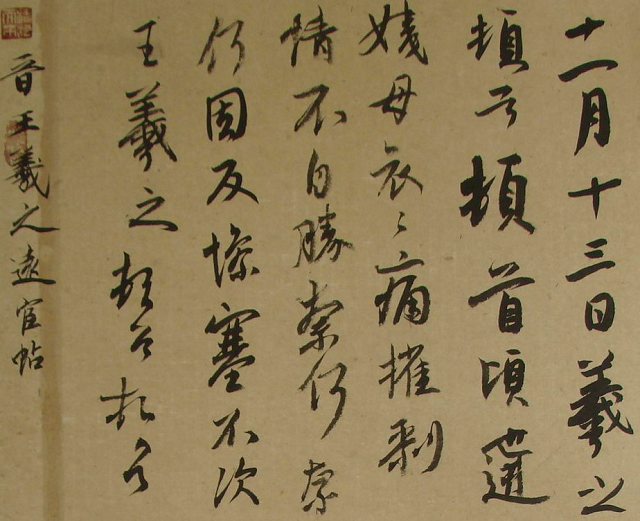 十一月十三日羲之
頓首頓首頃遘
姨母哀〻痛摧剥
情不自勝奈何奈
何因反慘塞不次
王羲之頓首頓首
晋王羲之遠宦帖